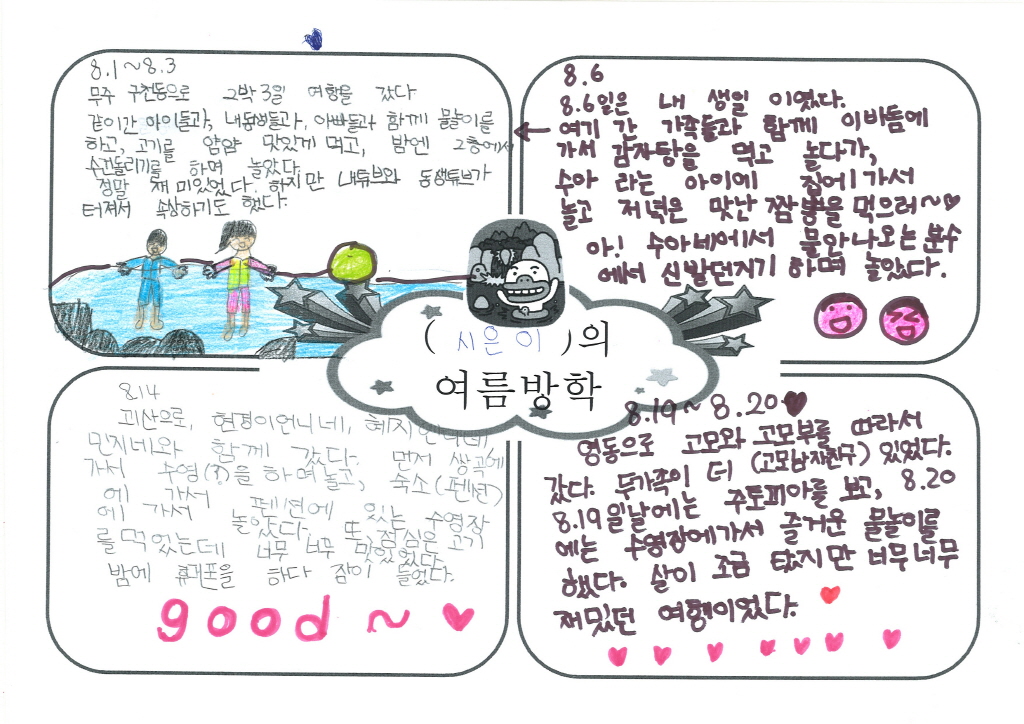 8.1~8.3
무주 구천동으로 2박 3일 여행을 갔다
같이간 아이들과, 내동생들과, 아빠들과 함께 물놀이를
하고, 고기를 얌얌 맛있게 먹고, 밤엔 2층에서
수건돌리기를 하며 놀았다.
정말 재미있었다. 하지만 내튜브와 동생튜브가
터져서 속상하기도 했다.
8.6
8.6일은 내 생일 이였다.
여기 간 가족들과 함께 이바돔에
가서 감자탕을 먹고 놀다가,
수아 라는 아이에 집에가서
놀고 저녁은 맛난 짬뽕을 먹으러~♡
아! 수아네에서 물안나오는 분수
에서 신발던지기 하며 놀았다.
(시은이)의
여름방학
8.14
괴산으로, 현경이언니네, 혜지언니네
민지네와 함께 갔다. 먼저 쌍곡에
가서 수영(?)을 하며놀고, 숙소(펜션)
에 가서 펜션에 있는 수영장
에 가서 놀았다. 또, 점심은 고기
를먹었는데 너무 너무 맛있었다.
밤에 휴대폰을 하다 잠이 들었다.
good~♥
8.19~8.20♥
영동으로 고모와 고모부를 따라서
갔다. 두가족이 더 (고모남자친구) 있었다.
8.19일날에는 주토피아를 보고, 8.20
에는 수영장에가서 즐거운 물놀이를
했다. 살이 조금 탔지만 너무너무
재밌던 여행이었다.